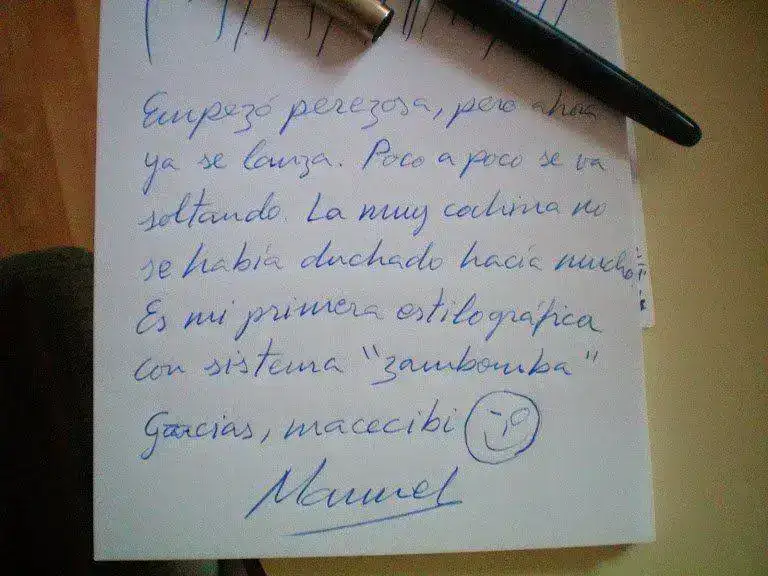 Empezó perezosa, pero ahora
ya se lanza. Poco a poco se va
soltando. La muy cochina no
se había duchado hacía mucho.
Es mi primera estilográfica
con sistema "zambomba"
Gracias, macecibi
Manuel